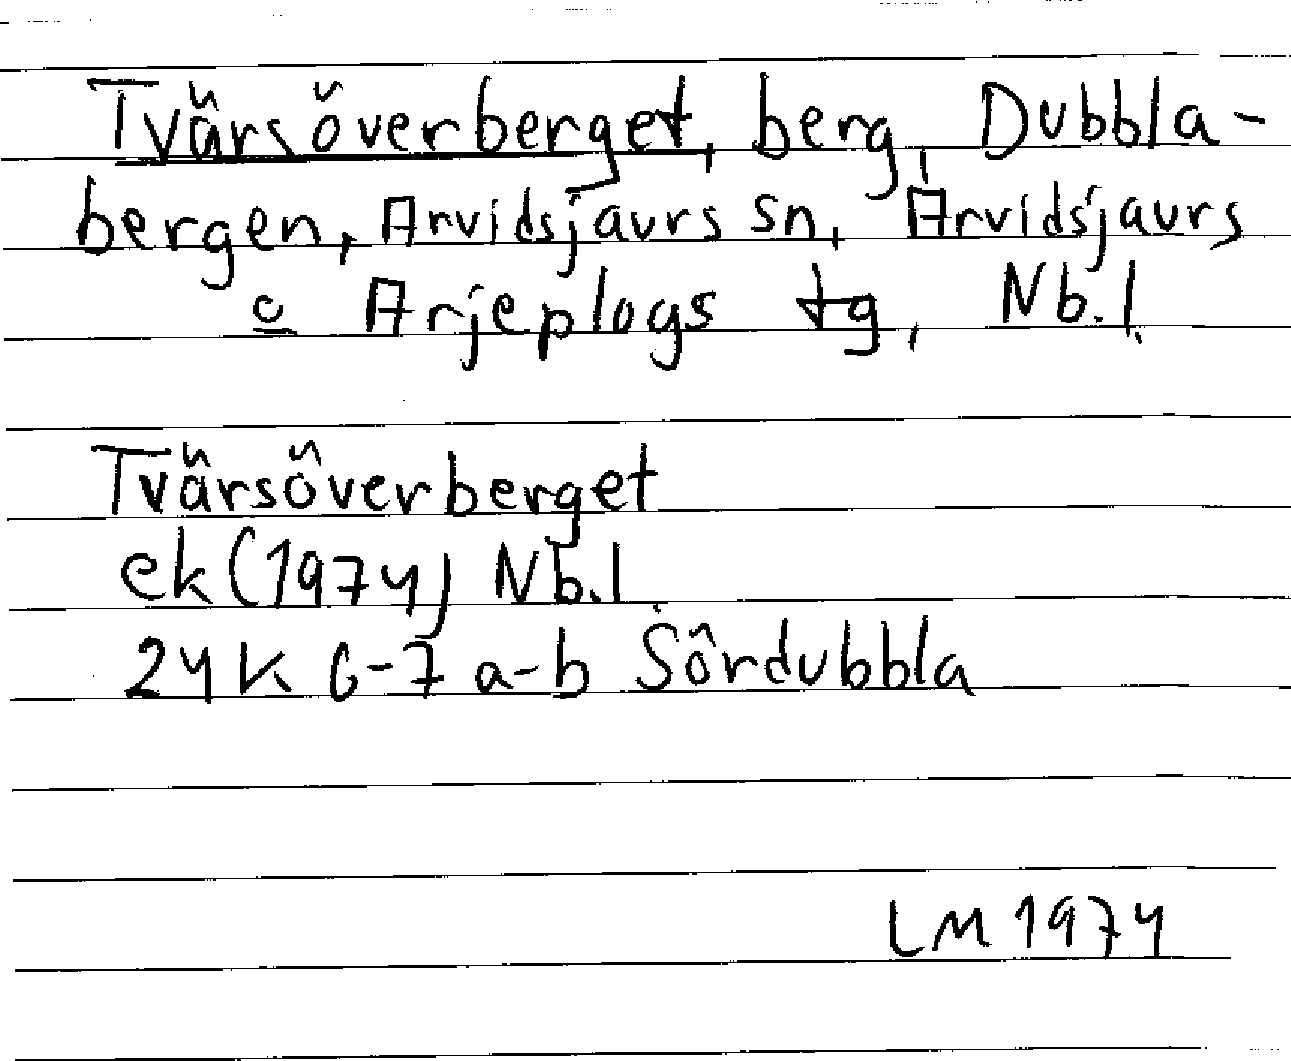 Tvärsöverberget, berg, Dubbla-
bergen, Arvidsjaurs sn, Arvidsjaurs
o Arjeplogs tg, Nb.l.
Tvärsöverberget
ek (1974) Nb.l
24K 6-7 a-b Sördubbla
LM 1974